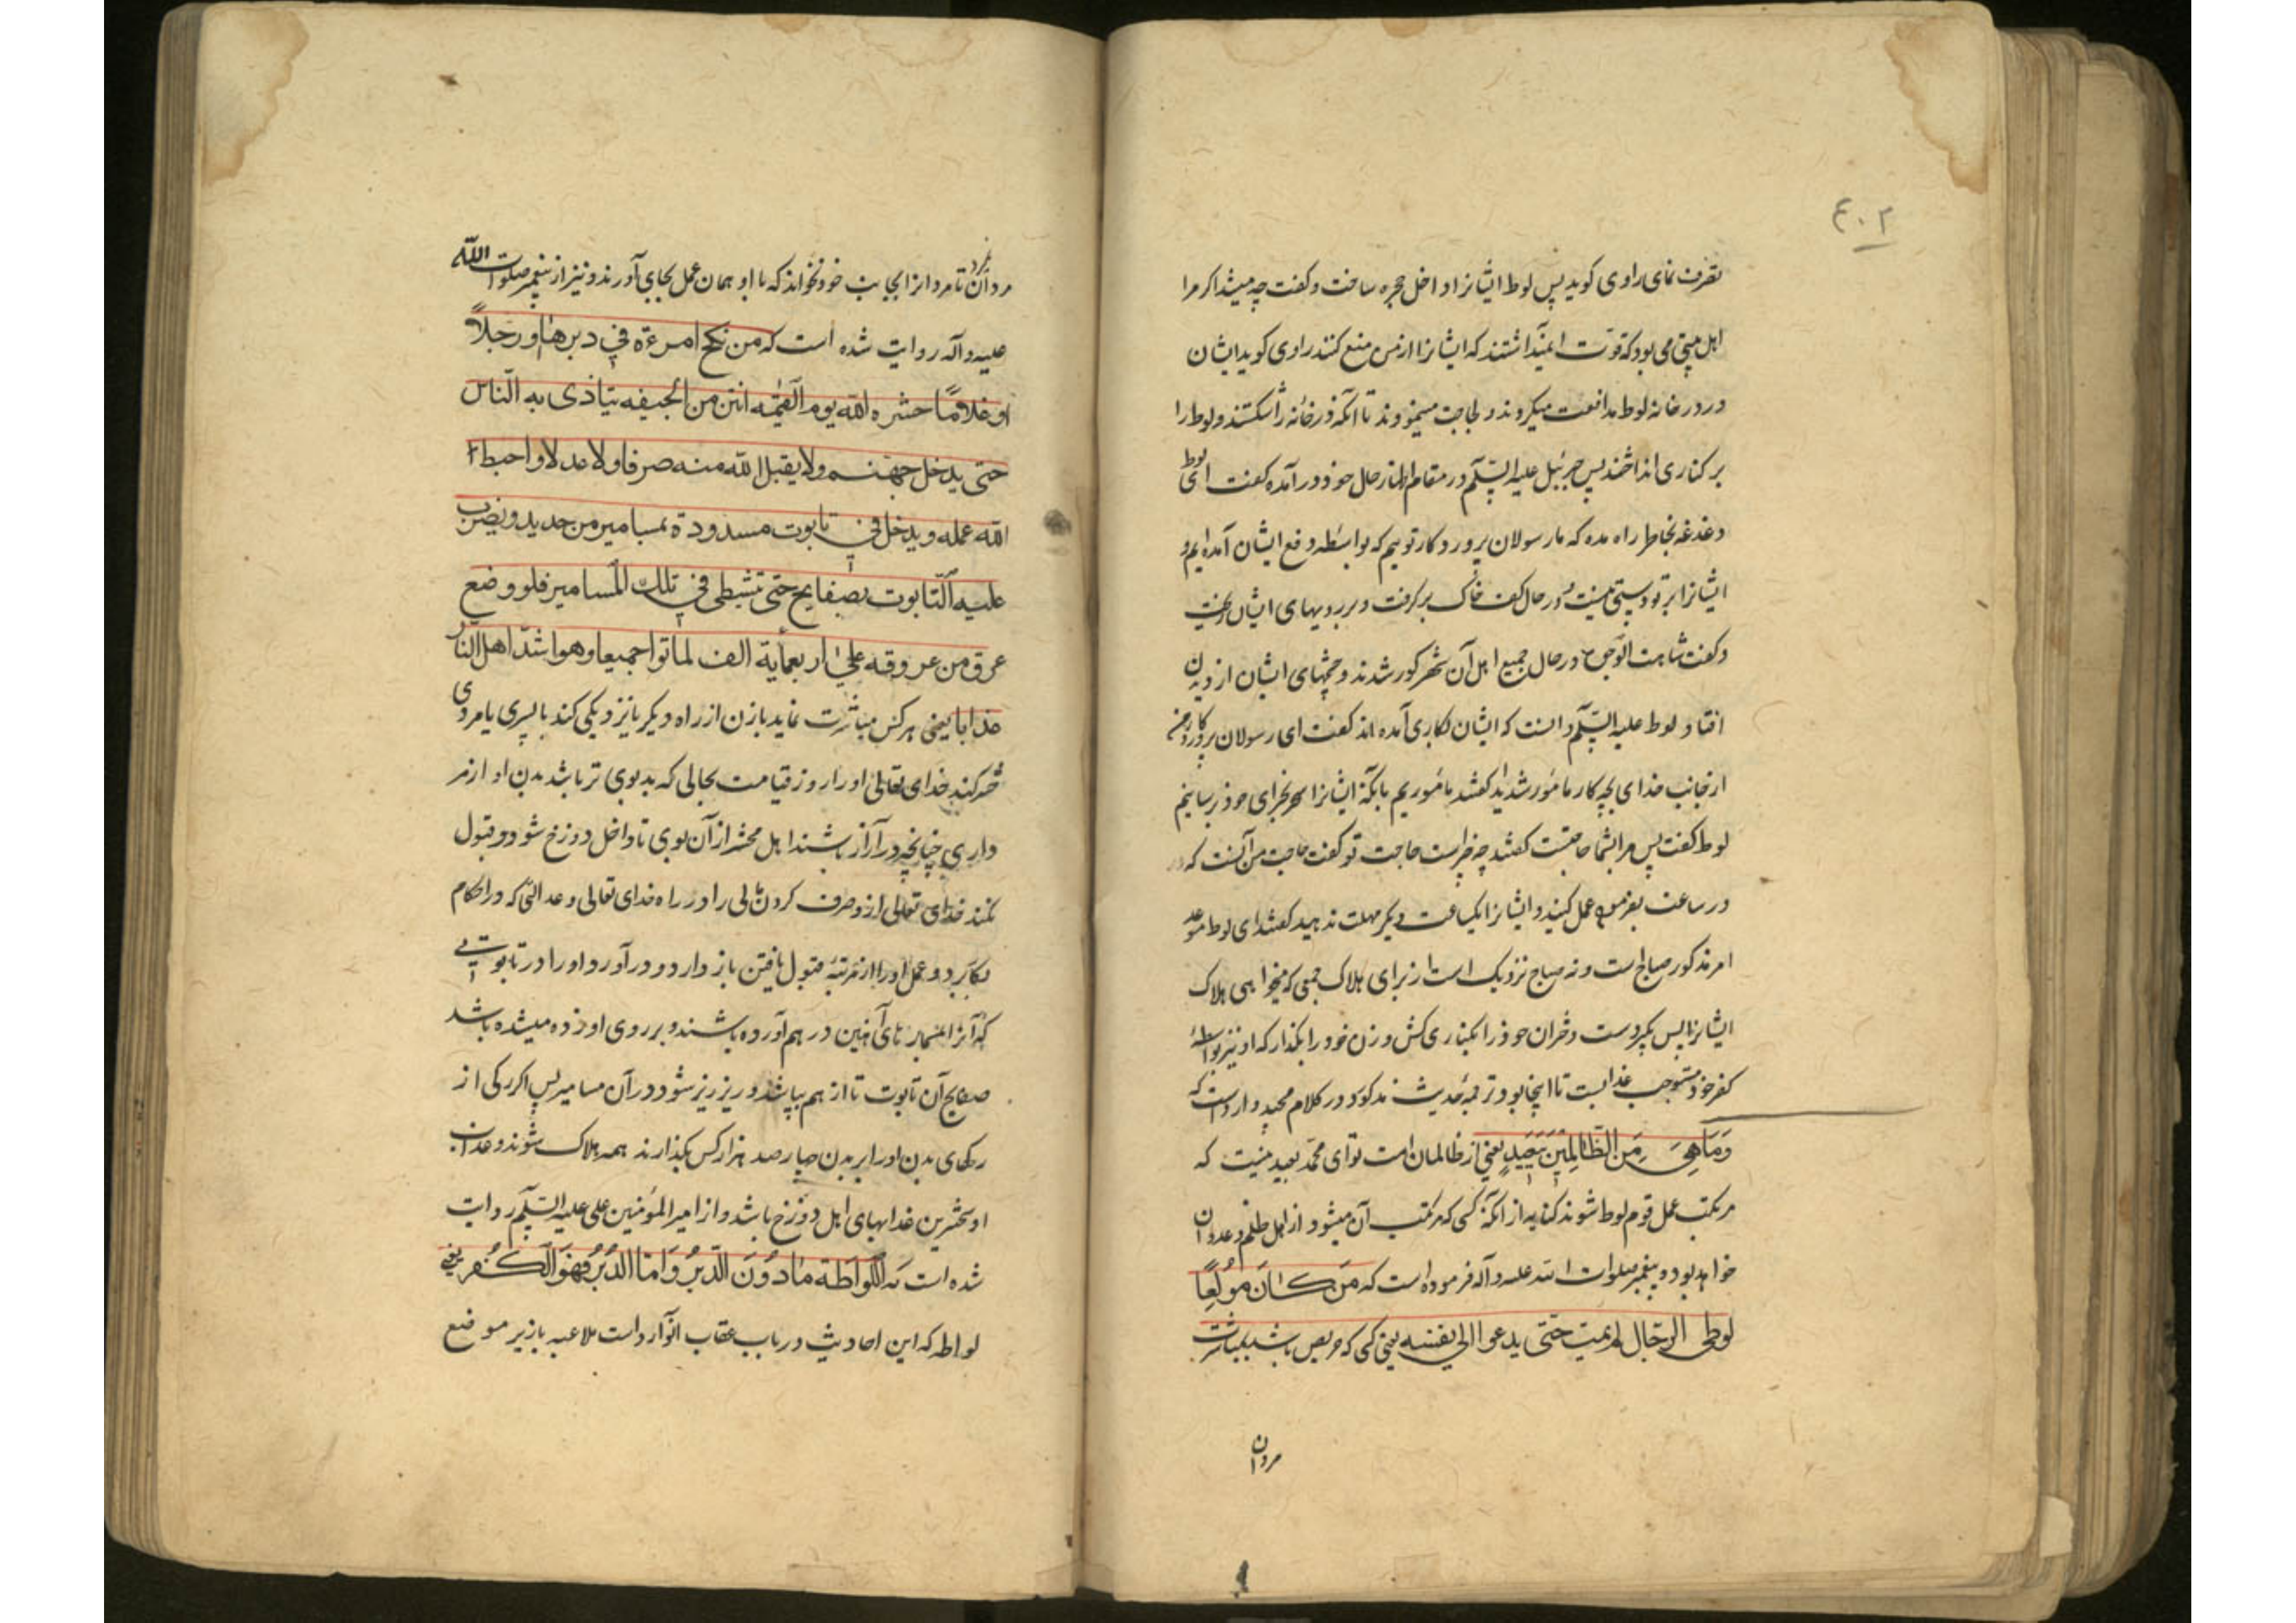 ۴۰۲
تصرف نمای راوی کوید پس لوط ایشانرا داخل حجره ساخت و کفت چه میشد اکر مرا
اهل بیتی می بود که قوت انمیداشتند که ایشانرا از من منع کنند راوی کوید ایشان
در در خانه لوط مدافعت میکردند و لجاجت مینمودند تا آنکه در خانه را شکستند و لوط را
بر کناری انداختند پس جبرئیل علیه السلام در مقام اظهار حال خود در آمده کفت ای لوط
دغدغه بخاطر راه مده که ما رسولان پروردکار توییم که بواسطه دفع ایشان آمده ایم و
ایشانرا بر تو دستی نیست و در حال کف خاک بر کرفت و بر رویهای ایشان ریخت
و کفت شاهت الوجوه در حال جمیع اهل آن شهر کور شدند و چشمهای ایشان از دیدن
افتاد و لوط علیه السلام دانست که ایشان بکاری آمده اند کفت ای رسولان پروردکار من
از جانب خدای بچه کار مامور شدید کفتند مأموریم بانکه ایشانرا سحر بجزای خود برسانیم
لوط کفت پس مرا بشما حاجتست کفتند چه چیز است حاجت تو کفت حاجت من آنست که
در ساعت بفرموده عمل کنید و ایشانرا یکساعت دیکر مهلت ندهید کفتند ای لوط موعد
امر مذکور صباح است و نه صباح نزدیک است از برای هلاک جمعی که میخواهی هلاک
ایشانرا پس بکیر دست دختران خود را بکناری کش و زن خود را بکذار که او نیز بواسطهٔ
کفر خود مستوجب عذابست تا اینجا بود ترجمهٔ حدیث مذکور و در کلام مجید وارد است که
وَمَا هِیَ مِنَ الظَّالِمِینَ بِبَعِیدٍ یعنی از ظالمان امت تو ای محمد بعید نیست که
مرتکب عمل قوم لوط شوند کنایه از آنکه کسی که مرتکب آن میشود از اهل ظلم و عدوان
خواهد بود و پیغمبر صلوات الله علیه و آله فرموده است که مَن کَانَ مُولَعًا
لوطی الرجال لم یمت حتی یدعوا الی نفسه یعنی کسی که حریص باشد بمباشرت
مردان
مردان تا مردانرا بجانب خود نخواند که با او همان عمل بجای آورند و نیز از پیغمبر صلوات الله
علیه و آله روایت شده است که من نکح امرءة فی دبرها او رجلاً
او غلاماً حشره الله یوم القیمه انتن من الجیفه یتاذی به الناس
حتی یدخل جهنم ولا یقبل الله منه صرفا ولا عدلا و احبط
الله عمله و یدخل فی تابوت مسدودة بمسامیر من حدید و یضرب
علیه التابوت بصفایح حتی تشیطی فی تلک المسامیر فلو وضع
عرق من عروقه علی اربعمأیة الف لماتوا جمیعا وهو اشد اهل النار
عذابا یعنی هر کس مباشرت نماید با زن از راه دیکر یا نزدیکی کند با پسری یا مردی
حشر کند خدای تعالی او را روز قیامت بحالی که بدبوی تر باشد بدن او از مر
داری چنانچه در آزار باشند اهل محشر از آن بوی تا داخل دوزخ شود و قبول
نکند خدای تعالی از و صرف کردن مالی را در راه خدای تعالی و عدالتی که در احکام
بکار برد و عمل او را از مرتبهٔ قبول یافتن باز دارد و در آورد او را در تابوتی
که آنرا بمسمار های آهنین در هم آورده باشند و بر روی او زده میشده باشد
صفایح آن تابوت تا از هم بپاشد و ریز ریز شود در آن مسامیر پس اکر رکی از
رکهای بدن او را بر بدن چهار صد هزار کس بکذارند همه هلاک شوند و عذاب
او سختترین عذابهای اهل دوزخ باشد و از امیر المؤمنین علی علیه السلام روایت
شده است که اللِّواطَة مَا دُونَ الدُّبُرِ وَاَمَّا الدُّبُرُ فَهُوَ الکُفر یعنی
لواطه که این احادیث در باب عقاب آن وارد است ملاعبه بازیر موضع